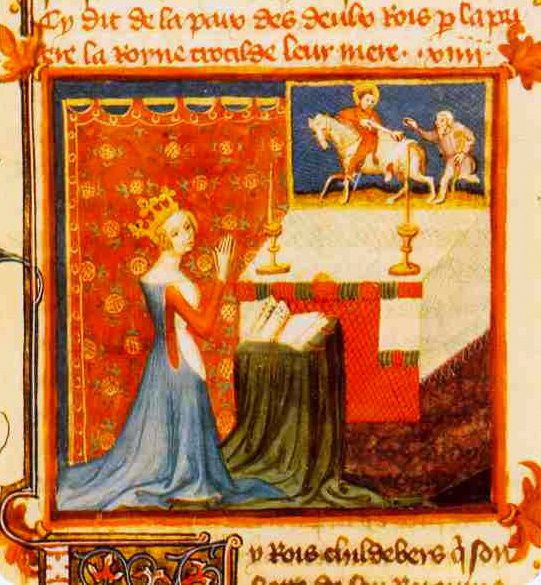 Cy dit de la paix des deulx Rois p la pri
ere la Royne crotilde leur mere . xviiii .
y Rois childebers q son